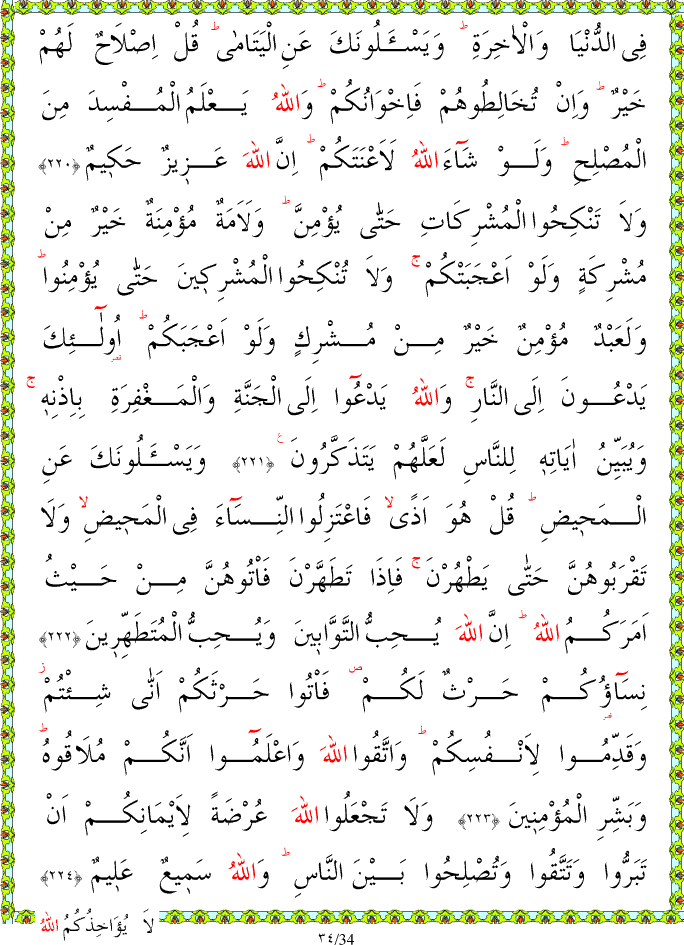 فِى الدُّنْيَا وَالْاٰخِرَةِ ؕ وَيَسْـَٔلُونَكَ عَنِ الْيَتَامٰى ؕ قُلْ اِصْلَاحٌ لَهُمْ
خَيْرٌ ؕ وَاِنْ تُخَالِطُوهُمْ فَاِخْوَانُكُمْ ؕ وَاللهُ يَعْلَمُ الْمُفْسِدَ مِنَ
الْمُصْلِحِ ؕ وَلَوْ شَٓاءَ اللهُ لَاَعْنَتَكُمْ ؕ اِنَّ اللهَ عَزٖيزٌ حَكٖيمٌ ﴿٢٢٠﴾
وَلَا تَنْكِحُوا الْمُشْرِكَاتِ حَتّٰى يُؤْمِنَّ ؕ وَلَاَمَةٌ مُؤْمِنَةٌ خَيْرٌ مِنْ
مُشْرِكَةٍ وَلَوْ اَعْجَبَتْكُمْ ۚ وَلَا تُنْكِحُوا الْمُشْرِكٖينَ حَتّٰى يُؤْمِنُوا ؕ
وَلَعَبْدٌ مُؤْمِنٌ خَيْرٌ مِنْ مُشْرِكٍ وَلَوْ اَعْجَبَكُمْ ؕ اُولٰٓئِكَ
يَدْعُونَ اِلَى النَّارِ ۚ وَاللهُ يَدْعُٓوا اِلَى الْجَنَّةِ وَالْمَغْفِرَةِ بِاِذْنِهٖ ۚ
وَيُبَيِّنُ اٰيَاتِهٖ لِلنَّاسِ لَعَلَّهُمْ يَتَذَكَّرُونَ ࣖ ﴿٢٢١﴾ وَيَسْـَٔلُونَكَ عَنِ
الْمَحٖيضِ ؕ قُلْ هُوَ اَذًى ۙ فَاعْتَزِلُوا النِّسَٓاءَ فِى الْمَحٖيضِ ۙ وَلَا
تَقْرَبُوهُنَّ حَتّٰى يَطْهُرْنَ ۚ فَاِذَا تَطَهَّرْنَ فَاْتُوهُنَّ مِنْ حَيْثُ
اَمَرَكُمُ اللهُ ؕ اِنَّ اللهَ يُحِبُّ التَّوَّابٖينَ وَيُحِبُّ الْمُتَطَهِّرٖينَ ﴿٢٢٢﴾
نِسَٓاؤُكُمْ حَرْثٌ لَكُمْ ࣗ فَاْتُوا حَرْثَكُمْ اَنّٰى شِئْتُمْ ؗ
وَقَدِّمُوا لِاَنْفُسِكُمْ ؕ وَاتَّقُوا اللهَ وَاعْلَمُٓوا اَنَّكُمْ مُلَاقُوهُ ؕ
وَبَشِّرِ الْمُؤْمِنٖينَ ﴿٢٢٣﴾ وَلَا تَجْعَلُوا اللهَ عُرْضَةً لِاَيْمَانِكُمْ اَنْ
تَبَرُّوا وَتَتَّقُوا وَتُصْلِحُوا بَيْنَ النَّاسِ ؕ وَاللهُ سَمٖيعٌ عَلٖيمٌ ﴿٢٢٤﴾
لَا يُؤَاخِذُكُمُ اللهُ
٣٤/34